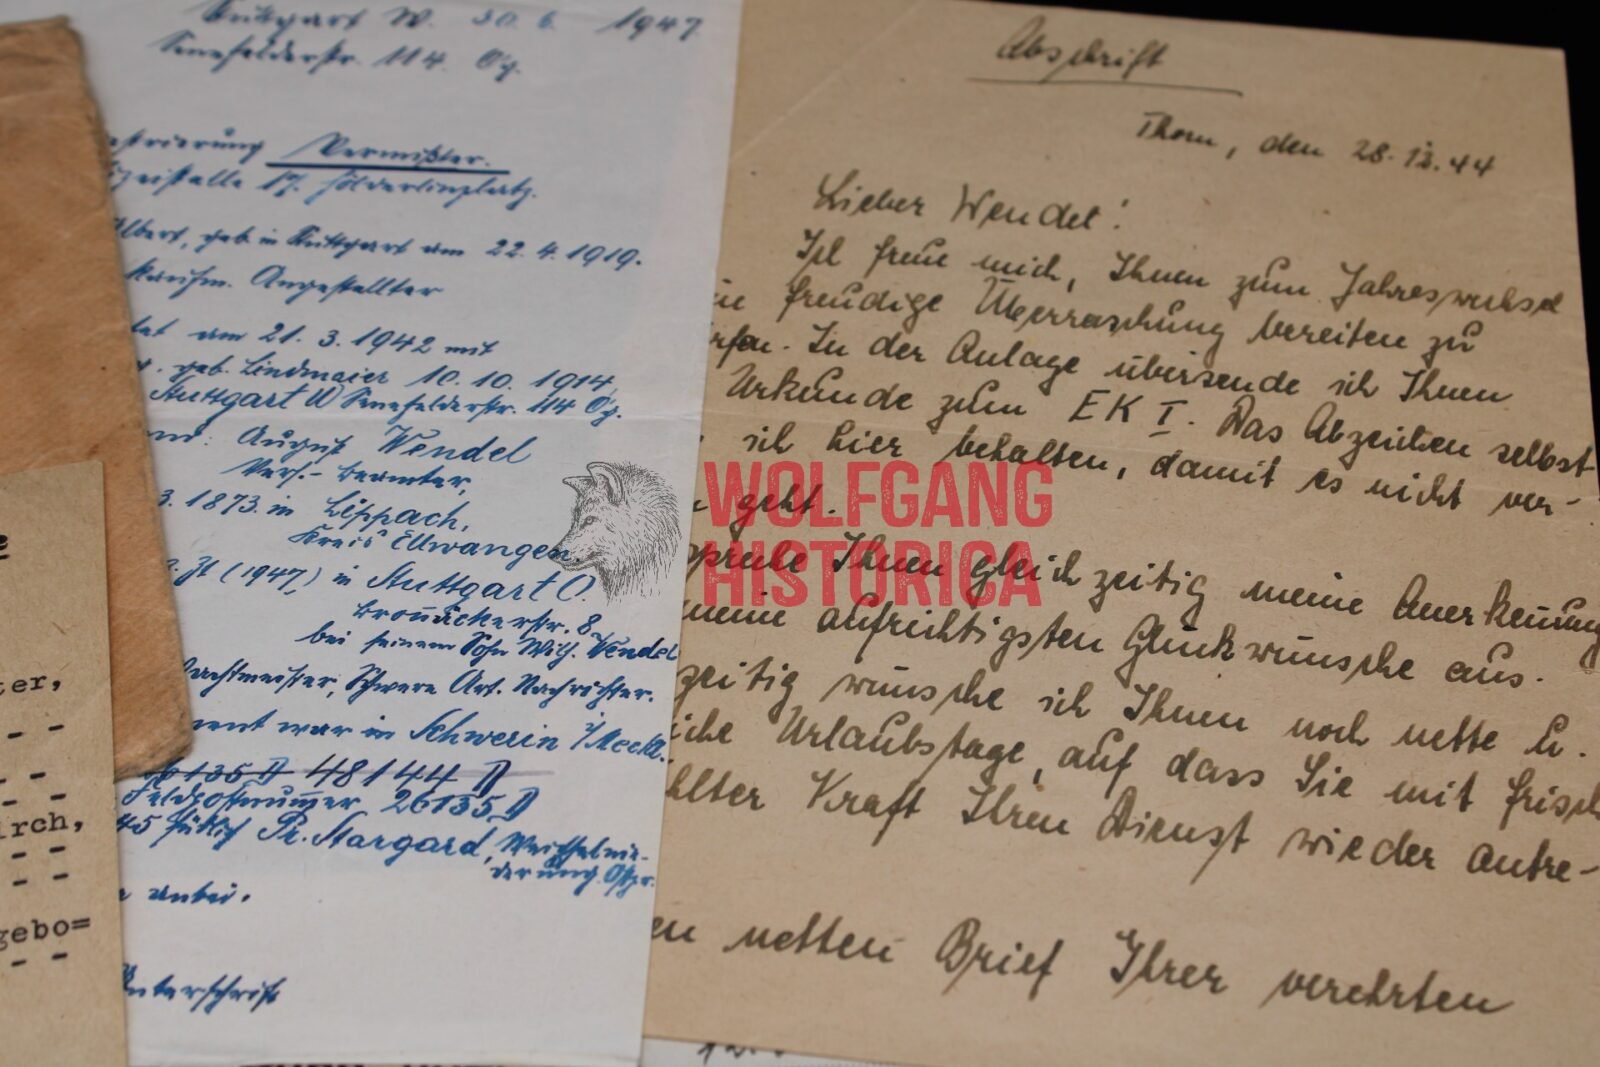 Stuttgart W. 30. 6. 1947
Senefelderstr. 114. Og.
strierung Vermißter.
izeistelle 17. Hölderlinplatz.
Albert, geb. in Stuttgart am 22. 4. 1919.
kaufm. Angestellter
tet am 21. 3. 1942 mit
geb. Lindmaier 10. 10. 1914,
Stuttgart W Senefelderstr. 114 Og.
August Wendel
Vers.- Beamter,
3. 1873 in Lippach,
Kreis Ellwangen.
z. Zt (1947) in Stuttgart O.
str. 8
bei seinem Sohn Wilh. Wendel
achtmeister, Schwere Art. Nachrichter.
ment war in Schwerin i/Meckl.
26135 D 48144 D
Feldpostnummer 26135 D
45 südlich Pr. Stargard, Weichselnie-
derung. Ostpr.
anbei.
Unterschrift
e
ter,
- -
- -
- -
irch,
- -
- -
gebo=
- -
Abschrift
Thorn, den 28.12.44
Lieber Wendel!
Ich freue mich, Ihnen zum Jahreswechsel
ne freudige Überraschung bereiten zu
rfen. In der Anlage übersende ich Ihnen
Urkunde zum EK I. Das Abzeichen selbst
ich hier behalten, damit es nicht ver-
n geht.
spreche Ihnen gleichzeitig meine Anerkennung
meine aufrichtigsten Glückwünsche aus.
zeitig wünsche ich Ihnen noch nette u.
iche Urlaubstage, auf dass Sie mit frisch
hlter Kraft Ihren Dienst wieder antre-
en netten Brief Ihrer verehrten
WOLFGANG
HISTORICA